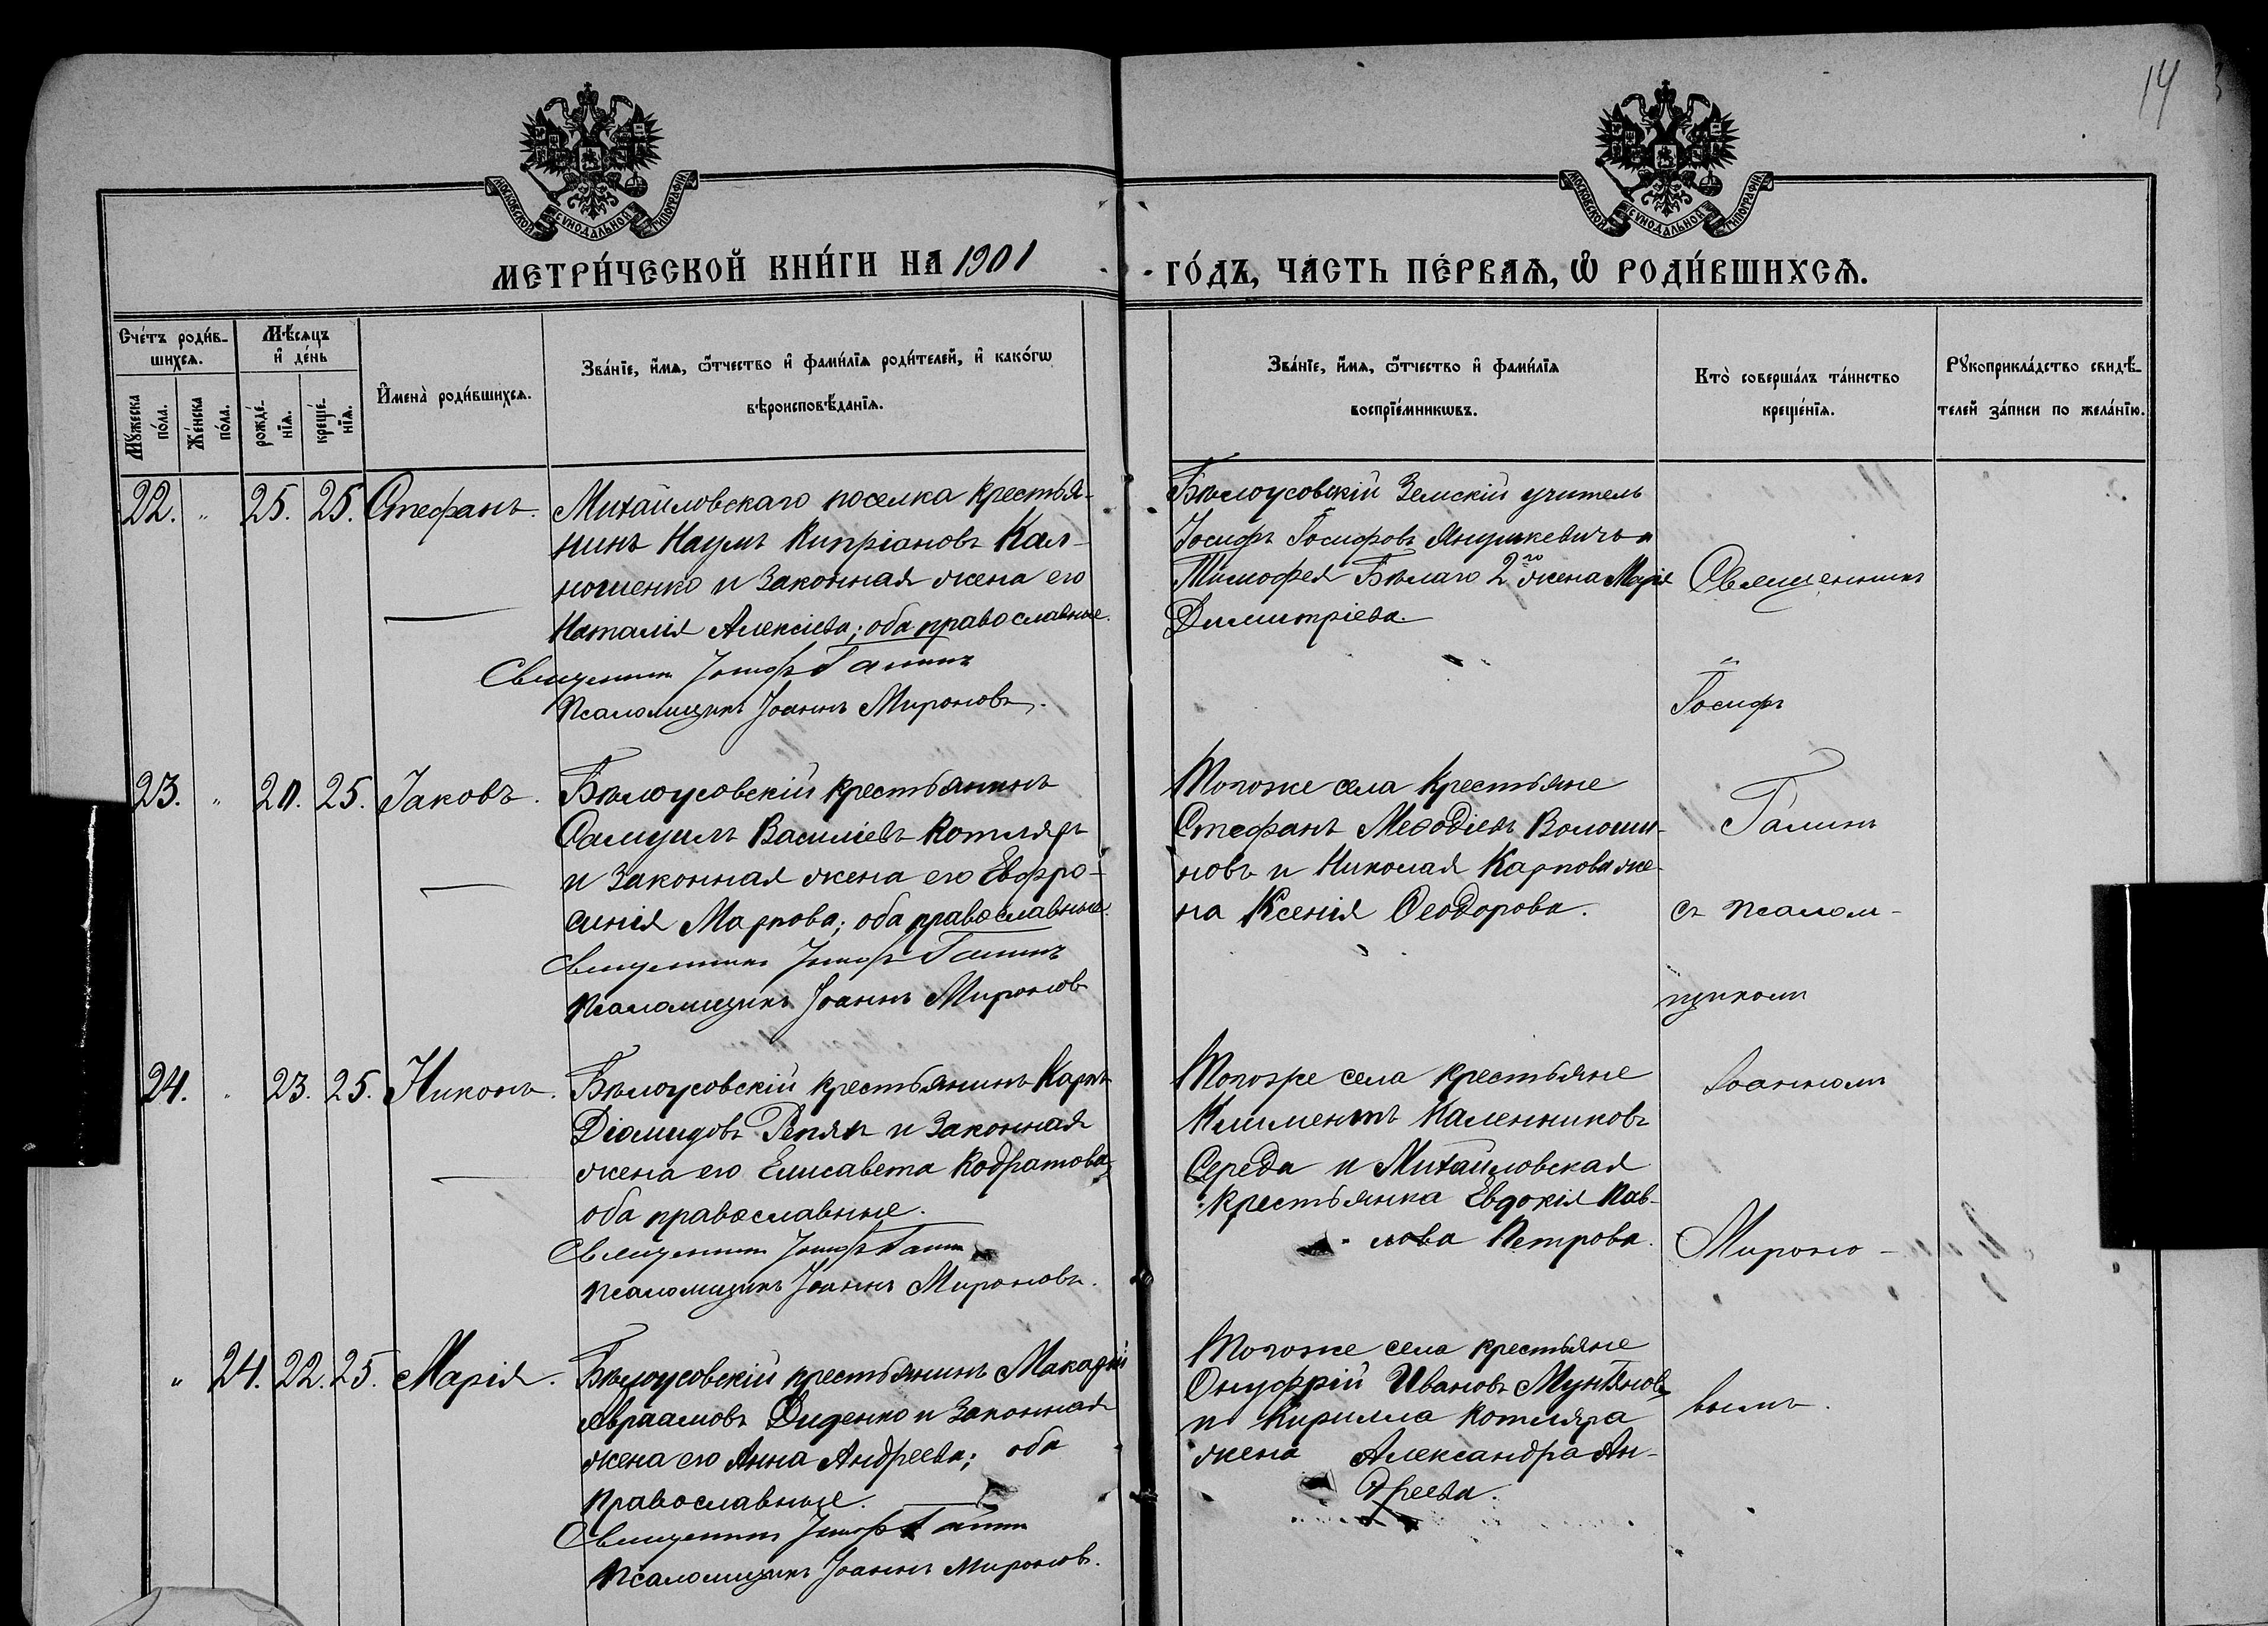 14
МОСКОВСКОЙ СУНОДАЛЬНОЙ ТИПОГРАФІИ
МОСКОВСКОЙ СУНОДАЛЬНОЙ ТИПОГРАФІИ
МЕТРИ́ЧЕСКОЙ КНИ́ГИ НА 1901
ГО́ДЪ, ЧА́СТЬ ПЕ́РВАѦ, Ѽ РОДИ́ВШИХСѦ.
Сче́тъ роди́в-
шихсѧ.
Мꙋ́жеска по́ла.
Же́нска по́ла.
Мѣ́сѧцъ
и҆ де́нь
рожде́-
нїѧ.
креще́-
нїѧ.
И҆мена̀ роди́вшихсѧ.
Зва́нїе, и҆́мѧ, ѻ҆́тчество и҆ фами́лїѧ роди́телей, и҆ како́гѡ
вѣроисповѣ́данїѧ.
Зва́нїе, и҆́мѧ, ѻ҆́тчество и҆ фами́лїѧ
воспрїе́мникѡвъ.
Кто̀ соверша́лъ та́инство
креще́нїѧ.
Рꙋкоприкла́дство свидѣ́-
телей за́писи по жела́нїю.
22. " 25. 25. Стефанъ.
Михайловскаго поселка крестья-
нинъ Наумъ Кипріановъ Кал-
ношенко и законная жена его
Наталія Алексіева; оба православные.
Священникъ Іосифъ Галинъ
Псаломщикъ Іоаннъ Мироновъ.
Бѣлоусовскій Земскій учитель
Іосифъ Іосифовъ Янушкевичъ и
Тимофея Бѣлаго 2го жена Марія
Димитріева.
23. " 20. 25. Іаковъ.
Бѣлоусовскій крестьянинъ
Самуилъ Василіевъ Котляръ
и законная жена его Евфро-
синія Маркова; оба православные.
Священникъ Іосифъ Галинъ
Псаломщикъ Іоаннъ Мироновъ
Тогоже села крестьяне
Стефанъ Меѳодіевъ Волоши-
новъ и Николая Карпова же-
на Ксенія Ѳеодорова.
24. " 23. 25. Никонъ.
Бѣлоусовскій крестьянинъ Карпъ
Діомидовъ Репяхъ и законная
жена его Елисавета Кодратова;
оба православные.
Священникъ Іосифъ Галинъ
Псаломщикъ Іоаннъ Мироновъ.
Тогоже села крестьяне
Климентъ Каленниковъ
Середа и Михайловская
крестьянка Евдокія Пав-
лова Петрова.
" 24. 22. 25. Марія.
Бѣлоусовскій крестьянинъ Макарій
Авраамовъ Диденко и законная
жена его Анна Андреева; оба
православные.
Священникъ Іосифъ Галинъ
Псаломщикъ Іоаннъ Мироновъ.
Тогоже села крестьяне
Онуфрій Ивановъ Мунтяновъ
и Кирилла Котляра
жена Александра Ан-
дреева.
Священникъ
Іосифъ
Галинъ
съ псалом-
щикомъ
Іоанномъ
Мироно-
вымъ.